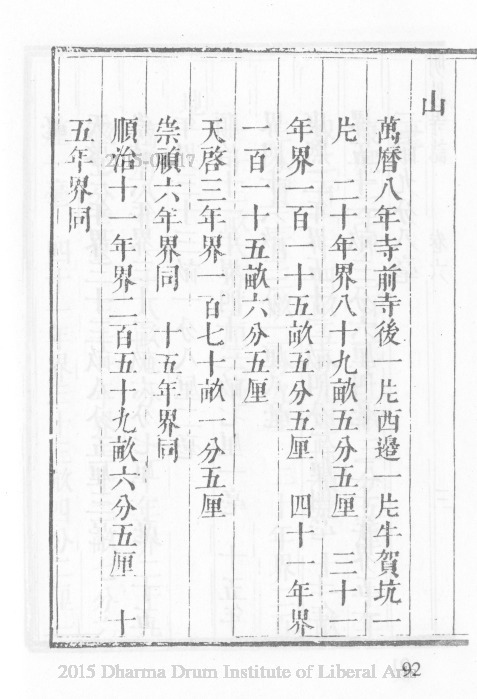 山
萬曆八年寺前寺後一片西邉一片牛賀坑一
片　二十年界八十九畝五分五厘　三十一
年界一百一十五畝五分五厘　四十一年界
一百一十五畝六分五厘
天啓三年界一百七十畝一分五厘
崇禎六年界同　十五年界同
順治十一年界二百五十九畝六分五厘　十
五年界同
2015 Dharma Drum Institute of Liberal Arts
92